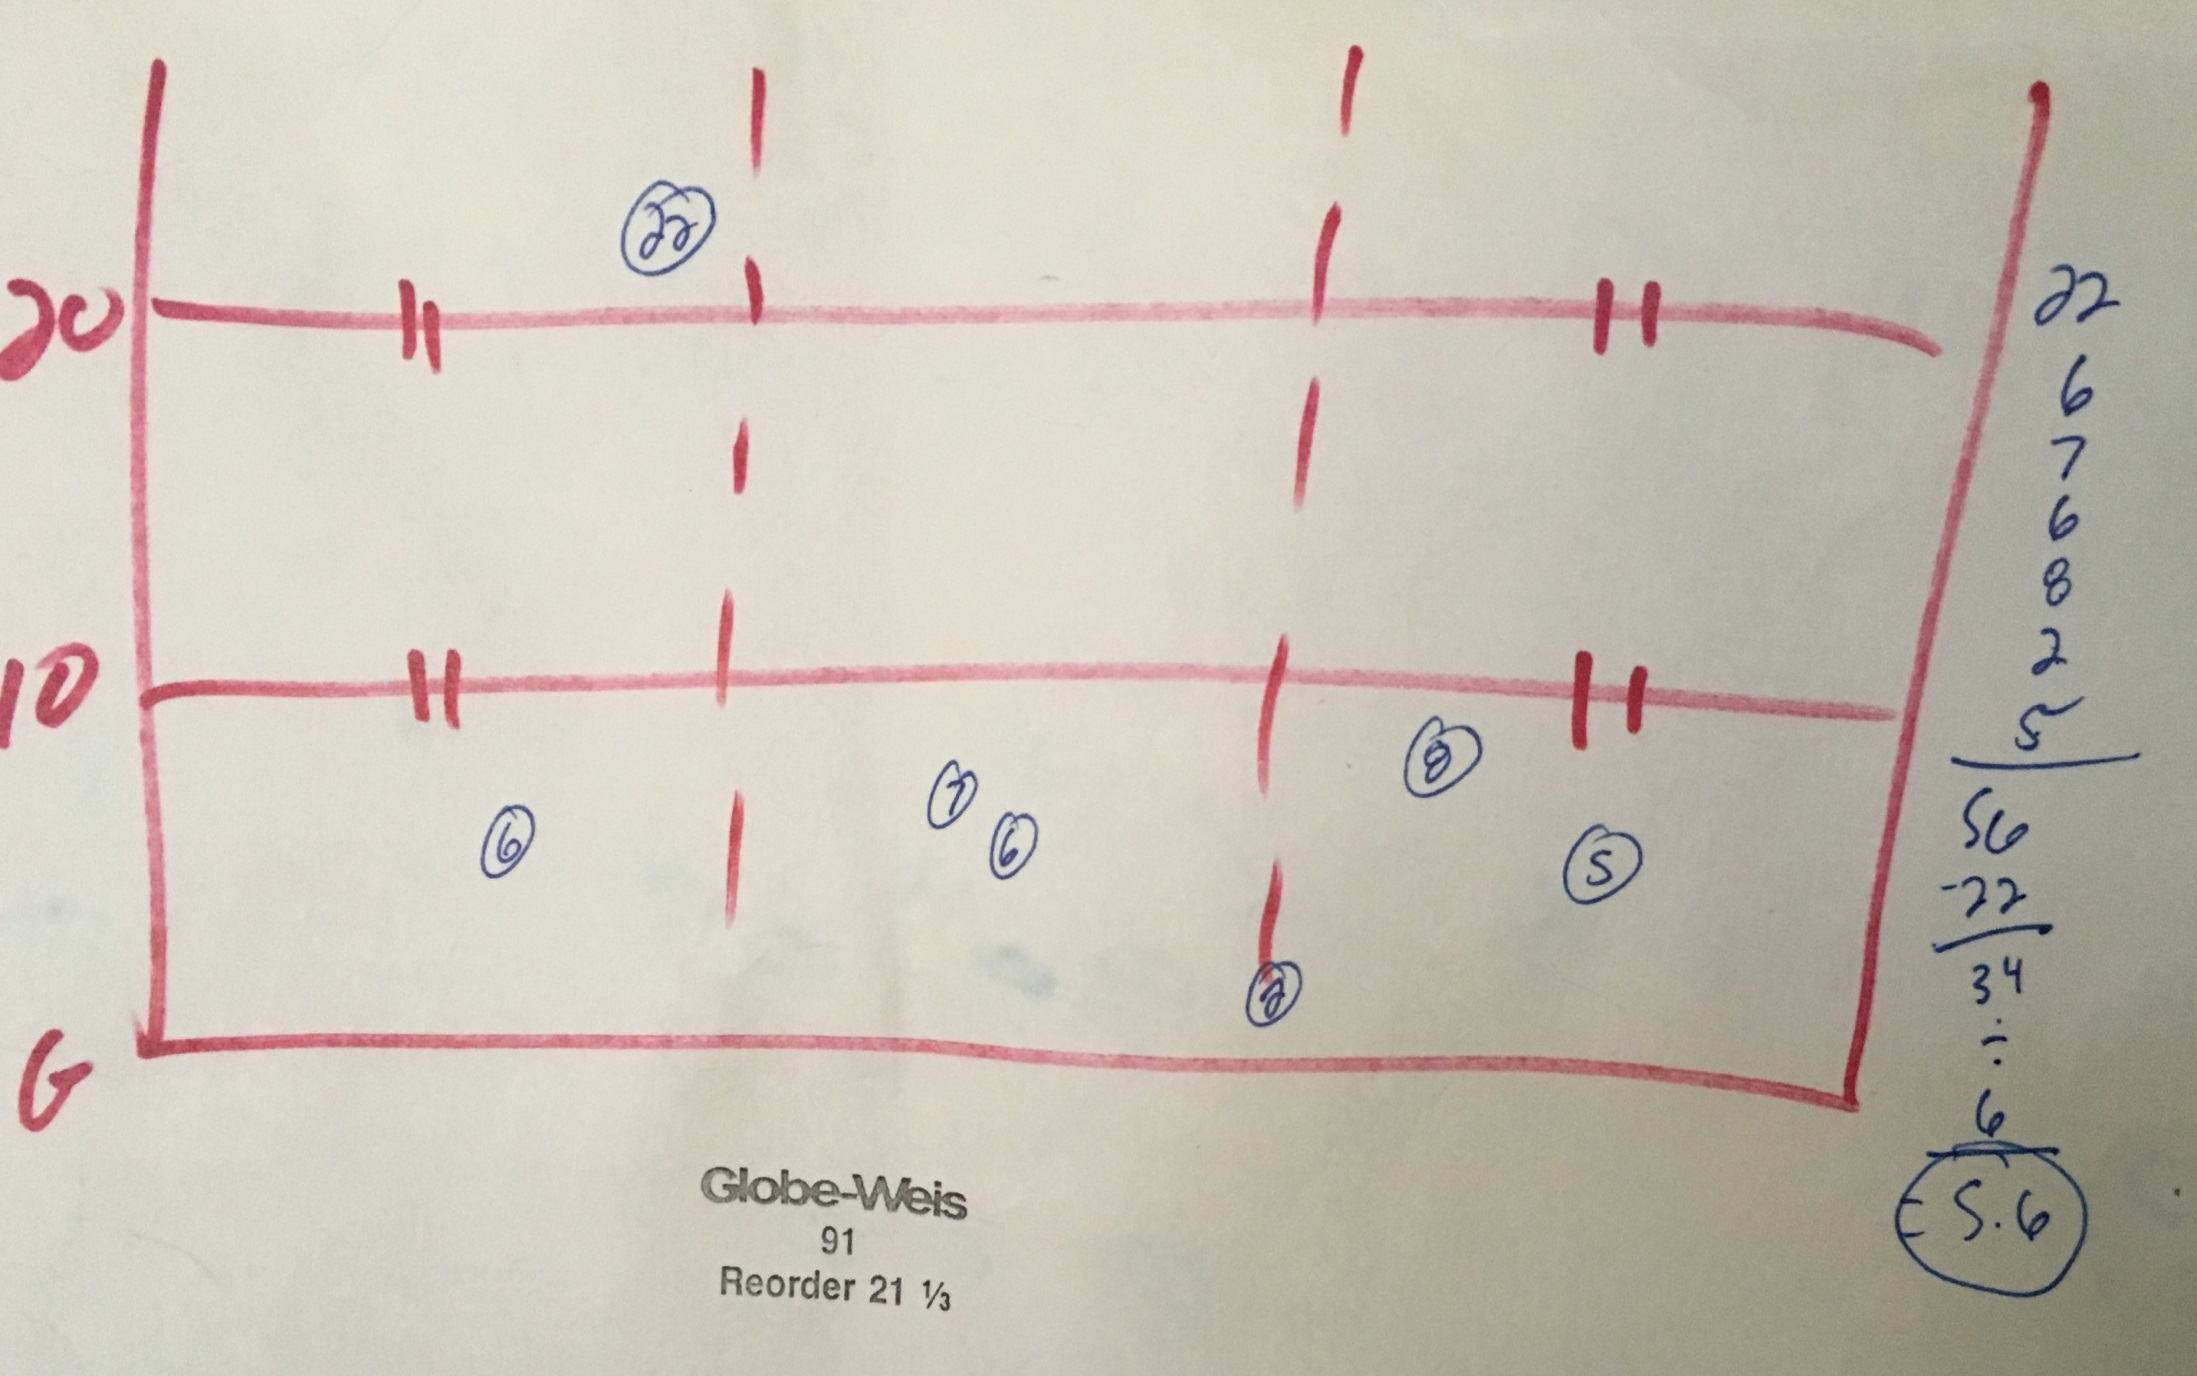 22
20
10
7
8
6
6
5
2
G
22
6
7
6
8
2
5
56
-22
34
÷
6
= 5.6
Globe-Weis
91
Reorder 21 ⅓